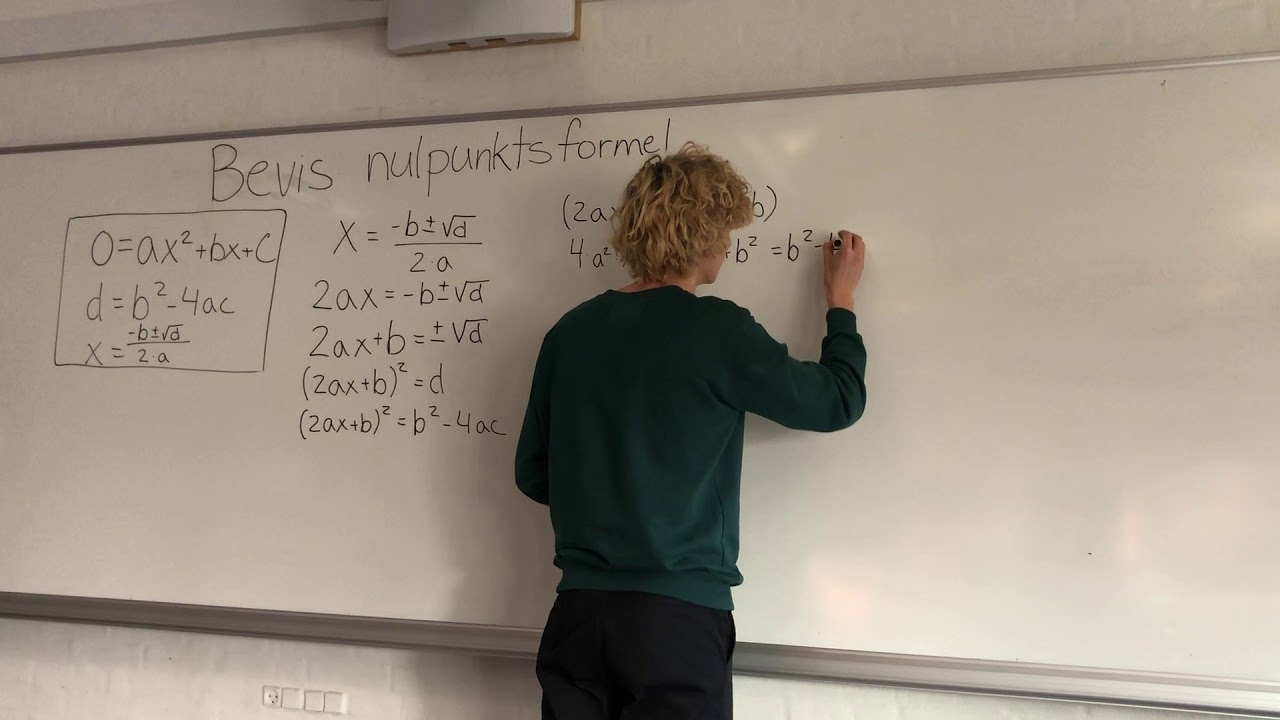 Bevis nulpunktsformel
0=ax²+bx+c
d=b²-4ac
x=\frac{-b±√d}{2·a}
x=\frac{-b±√d}{2·a}
2ax=-b±√d
2ax+b=±√d
(2ax+b)²=d
(2ax+b)²=b²-4ac
(2ax b)
4a² +b² =b²-